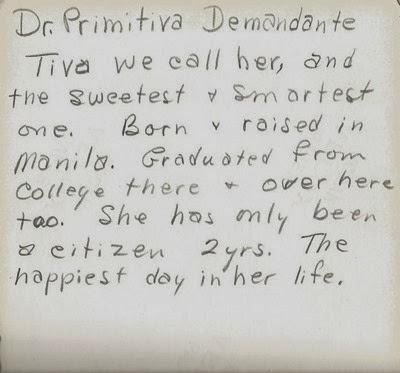 Dr. Primitiva Demandante
Tiva we call her, and
the sweetest & smartest
one. Born & raised in
Manila. Graduated from
College there & over here
too. She has only been
a citizen 2yrs. The
happiest day in her life.